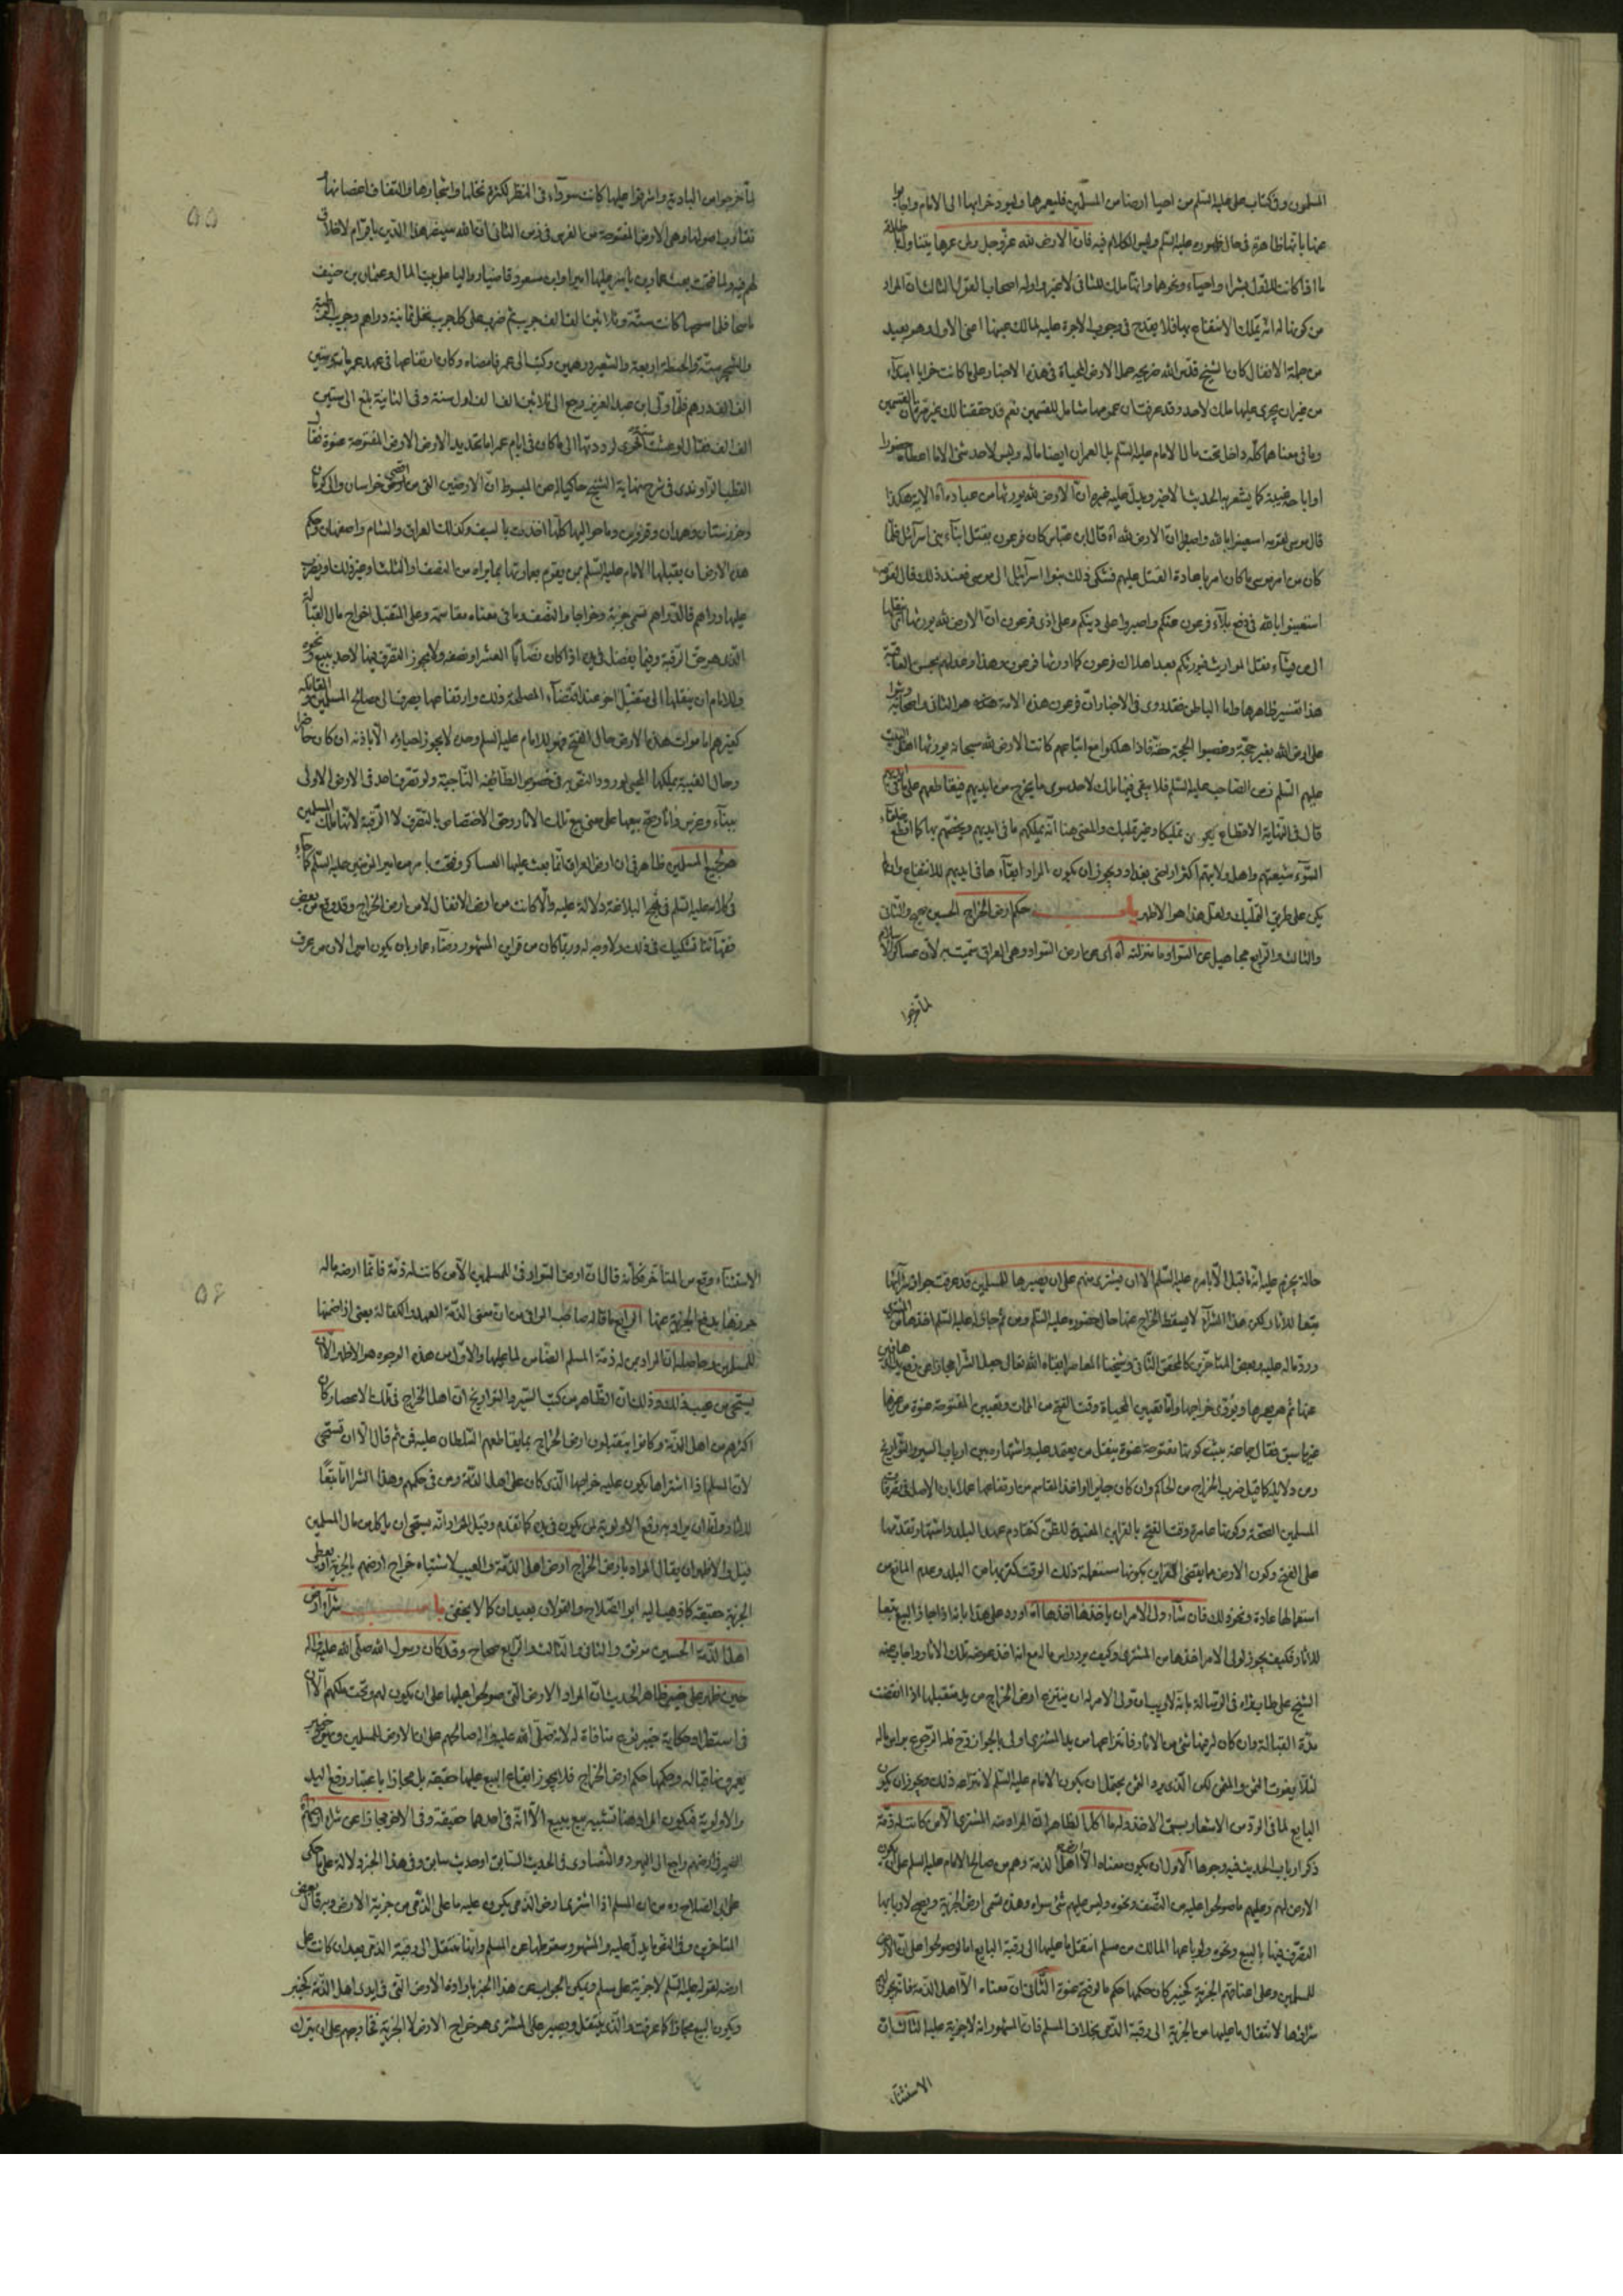 المسلمون وفي كتاب علي عليه السلم من احيا ارضا من المسلمين فليعمرها وليود خراجها الى الامام
عنها بانها ظاهرة في حال ظهوره عليه السلم وليس الكلام فيه فان الارض لله عز وجل ولمن عمرها يتناول
ما اذا كانت للاول بشراء واحياء ونحوها وانها ملك للثاني لاصحاب القول الثالث ان المراد
من كونها له انه يملك الانتفاع بها فلا يقدح في وجوب الاجرة عليه لمالك عينها اعني الاول وهو بعيد
من جملة الانفال كان الشيخ قدس الله ضريحه حمل الارض المحياة في هذه الاخبار على ما كانت خرابا ابتداء
من غير ان يجري عليها ملك لاحد وقد عرفت ان عمومها شامل للقسمين نعم قد حققنا لك غير مرة ان القسمين
وما في معناهما كله داخل تحت مال الامام عليه السلم بل العمران ايضا ماله وليس لاحد شئ الا ما اعطاه
او اباحه غيبة كما يشعر به الحديث الاخير ويدل عليه غيره ان الارض لله يورثها من عباده اه الاية هكذا
قال موسى لقومه استعينوا بالله واصبروا ان الارض لله اه قال ابن عباس كان فرعون يقتل ابناء بني اسرائيل فلما
كان من امر موسى ما كان امر باعادة القتل عليهم فشكى ذلك بنوا اسرائيل الى موسى فعند ذلك قال لقومه
استعينوا بالله في دفع بلاء فرعون عنكم واصبروا على دينكم وعلى اذى فرعون ان الارض لله يورثها اي ينقلها
الى من يشاء نقل المواريث فيورثكم بعد اهلاك فرعون كما اورثها فرعون وهذا وعد لهم بحسن العاقبة
هذا تفسير ظاهرها واما الباطن فقد روى في الاخبار ان فرعون هذه الامة هو الثاني واصحابه
على ارض الله بغير حجة وغصبوا الحجة حقه فاذا هلكوا مع اتباعهم كانت الارض لله سبحانه يورثها اهل البيت
عليهم السلم فمن الصاحب عليه السلم فلا يبقى فيها ملك لاحد سوى ما يخرج من ايديهم فيقاطعهم على ما في ايديهم
قال في النهاية الاقطاع يكون تمليكا وغير تمليك والمعنى هنا انه يملكهم ما في ايديهم ويخصهم بها كما اقطع خلفاء
السوء شيعتهم واهل ولايتهم اكثر اراضي بغداد ويجوز ان يكون المراد ابقاء ما في ايديهم للانتفاع وان لم
يكن على طريق التمليك ولعل هذا هو الاظهر باب حكم ارض الخراج الحسين صحيح والثاني
والثالث والرابع مجاهيل عن السواد ما منزلته اه اي عن ارض السواد وهي العراق سميت به لان عساكر الاسلام
لما خرجوا
لما خرجوا من البادية واشرفوا عليها كانت سوداء في النظر لكثرة نخلها واشجارها والتفاف اغصانها
تقارب اصولها وهي الارض المفتوحة من الفرس في زمن الثاني ان الله سينصر هذا الدين باقوام لا خلاق
لهم فيه ولما فتحت بعث عمار بن ياسر عليها اميرا وابن مسعود قاضيا وواليا على بيت المال وعثمان بن حنيف
ماسحا فلما مسحها كانت ستة وثلاثين الف الف جريب ثم ضرب على كل جريب نخل ثمانية دراهم وجريب
والشجر ستة والحنطة اربعة والشعير درهمين وكتب الى عمر فامضاه وكان ارتفاعها في عهد عمر مائة وستين
الف الف درهم فلما ولى ابن عبد العزيز رجع الى ثلاثين الف الف اول سنة وفي الثانية بلغ الى ستين
الف الف فقال لو عشت سنة اخرى لرددتها الى ما كان في ايام عمر اما تحديد الارض المفتوحة عنوة
القطب الراوندي في شرح نهاية الشيخ حاكيا له عن المبسوط ان الارضين التي من اقصى خراسان والى كرمان
وخوزستان وهمدان وقزوين وما حواليها كلها اخذت بالسيف وكذلك العراق والشام واصفهان وحكم
هذه الارض ان يقبلها الامام عليه السلم ممن يقوم بعمارتها بما يراه من النصف والثلث او غير ذلك او يضرب
عليها دراهم فالدراهم تسمى جزية وخراجا والنصف وما في معناه مقاسمة وعلى المتقبل اخراج مال القبالة
الذي هو حق الرقبة وفيما يفضل في يده اذا كان نصابا العشر او نصفه ولا يجوز التصرف فيها لاحد ببيع ونحوه
وللامام ان ينقلها الى متقبل اخر عند اقتضاء المصلحة ذلك وارتفاعها يصرف الى مصالح المسلمين
كغيرهم اما موات هذه الارض حال الفتح فهو للامام عليه السلم وحده لا يجوز احياؤه الا باذنه ان كان حاضرا
وحال الغيبة يملكها المحيي لورود النص به في خصوص الطائفة الناجية ولو تصرف احد في الارض الاولى
ببناء وغرس فانه يصح بيعها على معنى بيع تلك الاثار وحق الاختصاص بالتصرف لا الرقبة لانها ملك المسلمين
هو لجميع المسلمين ظاهر في ان ارض العراق انما بعث عليها العساكر وفتحت بامر من امير المؤمنين عليه السلم كما جاء
في كلامه عليه السلم في نهج البلاغة دلالة عليه والا لكانت من ارض الانفال لا من ارض الخراج وقد وقع من بعض
فقهائنا تشكيك في ذلك ولا وجه له وربما كان من قراين المشهور رضاء عمار بان يكون اميرا لان من عرف
٥٥
حاله يجزم عليه انه ما قبل الا بامره عليه السلم الا ان يشترى منهم على ان يصيرها للمسلمين قد عرفت جواز شرائها
تبعا للاثار ولكن هذا الشراء لا يسقط الخراج عنها حال حضوره عليه السلم ومن ثم جاز له عليه السلم اخذها من المشتري
ورد ماله عليه وبعض المتاخرين كالمحقق الثاني وشيخنا المعاصر ابقاه الله تعالى حمل الشرا مجازا عن رفع يد الذمي
عنها ثم هو يعمرها ويؤدى خراجها واما تعيين المحياة وقت الفتح من الموات وتعيين المفتوحة عنوة من غيرها
ما سبق فقال جماعة يثبت كونها مفتوحة عنوة بنقل من يعتمد عليه واشتهاره بين ارباب السير والتواريخ
ومن دلايله كما قيل ضرب الخراج من الحاكم وان كان جايرا واخذ المقاسمة من ارتفاعها عملا بان الاصل في تصرفات
المسلمين الصحة وكونها عامرة وقت الفتح بالقراين المفيدة للظن كتقادم عهد البلد واشتهار تقدمها
على الفتح وكون الارض مما يقضى القراين بكونها مستعملة ذلك الوقت كقربها من البلد وعدم المانع من
استعمالها عادة ونحو ذلك فان شاء ولى الامر ان ياخذها اخذها اه اورد على هذا بانه اذا جاز البيع تبعا
للاثار فكيف يجوز لولى الامر اخذها من المشترى وكيف يرد راس ماله مع انه اخذ عوضه تلك الاثار واجاب عنه
الشيخ علي طاب ثراه في الرسالة بانه لا ريب ان ولى الامر له ان ينتزع ارض الخراج من يد متقبلها اذا انقضت
مدة القبالة وان كان له فيها شئ من الاثار فانتزاعها من يد المشتري اولى بالجواز وح فله الرجوع براس ماله
لئلا يفوت الثمن والمثمن لكن الذي يرد الثمن يحتمل ان يكون الامام عليه السلم لانتزاعه ذلك ويجوز ان يكون
البايع لما في الرد من الاشعار بسبق الاخذ وله ما اكل الظاهر ان المراد منه المشتري الا من كانت له ذمة
ذكر ارباب الحديث فيه وجوها الاول ان يكون معناه الا ارض اهل الذمة وهم من صالح الامام عليه السلم على ان يكون
الارض لهم وعليهم ما صولحوا عليه من النصف ونحوه وليس عليهم شئ سواه وهذه تسمى ارض الجزية ويصح لاربابها
التصرف فيها بالبيع ونحوه ولو باعها المالك من مسلم انتقل ما عليها الى رقبة البايع اما لو صولحوا على ان الارض
للمسلمين وعلى اعناقهم الجزية كخيبر كان حكمها حكم ما لو فتح عنوة الثاني ان معناه الا اهل الذمة فانه يجوز
شراؤها لانتقال ما عليها من الجزية الى رقبة الذمي بخلاف المسلم فان المشهور انه لا جزية عليه الثالث ان
الاستثناء
الاستثناء وقع من المتاخر فكانه قال ان ارض السواد فئ للمسلمين الا من كانت له ذمة فانما ارضه ماله
حرزها بدفع الجزية عنها الرابع ما قاله صاحب الوافي من ان معنى الذمة العهد والكفالة يعنى اذا ضمنها
للمسلمين وحاصله ان المراد بمن له ذمة المسلم الضامن لما عليها والاول من هذه الوجوه هو الاظهر الا ان
يستحي من عيب ذلك وذلك ان الظاهر من كتب السير والتواريخ ان اهل الخراج في تلك الاعصار كان
اكثرهم من اهل الذمة وكانوا يتقبلون ارض الخراج بما يقاطعهم السلطان عليه فمن ثم قال الا ان تستحي
لان المسلم اذا اشتراها يكون عليه خراجها الذي كان على اهل الذمة ومن في حكمهم وهذا الشرا اما تبعا
للاثار واما ان يراد به رفع الاولوية لمن يكون في يده كما تقدم وقيل المراد انه يستحي ان ياكل من مال المسلمين
قيل والاظهر ان يقال المراد بارض الخراج ارض اهل الذمة والعيب لاشتباه خراج ارضهم بالجزية او يعطى
الجزية حقيقة كما ذهب اليه ابو الصلاح والقولان بعيدان كما لا يخفى باب شراء ارض
اهل الذمة الحسين موثق والثاني والثالث والرابع صحاح وقد كان رسول الله صلى الله عليه واله
حين ظهر على خيبر ظاهر الحديث ان المراد الارض التي صولحوا عليها على ان يكون لهم وتحت ملكهم الا ان
في استطراد حكاية خيبر نوع منافاة له لانه صلى الله عليه واله صالحهم على ان الارض للمسلمين ويبقى
يعمرونها قباله وحكمها حكم ارض الخراج فلا يجوز ايقاع البيع عليها حقيقة بل مجازا باعتبار رفع اليد
والاولوية فيكون المراد هنا تشبيه بيع ببيع الا انه في احدهما حقيقة وفي الاخر مجازا عن شراء ارضهم
الضمير في ارضهم راجع الى اليهود والنصارى في الحديث السابق او حديث سابق وفي هذا الخبر دلالة على ما حكى
عن ابي الصلاح وه من ان المسلم اذا اشترى ارض الذمي يكون عليه ما على الذمي من جزية الارض وبه قال بعض
المتاخرين وفي الفقه ما يدل عليه والمشهور سقوطها عن المسلم وانها تنتقل الى رقبة الذمي بعد ان كانت على
ارضه لقوله عليه السلم لا جزية على مسلم ويمكن الجواب عن هذا الخبر بارادة الارض التي في ايدى اهل الذمة كخيبر
ويكون البيع مجازا كما عرفت والذي ينتقل ويصير على المشترى هو خراج الارض لا الجزية على ان يترك
٥٦